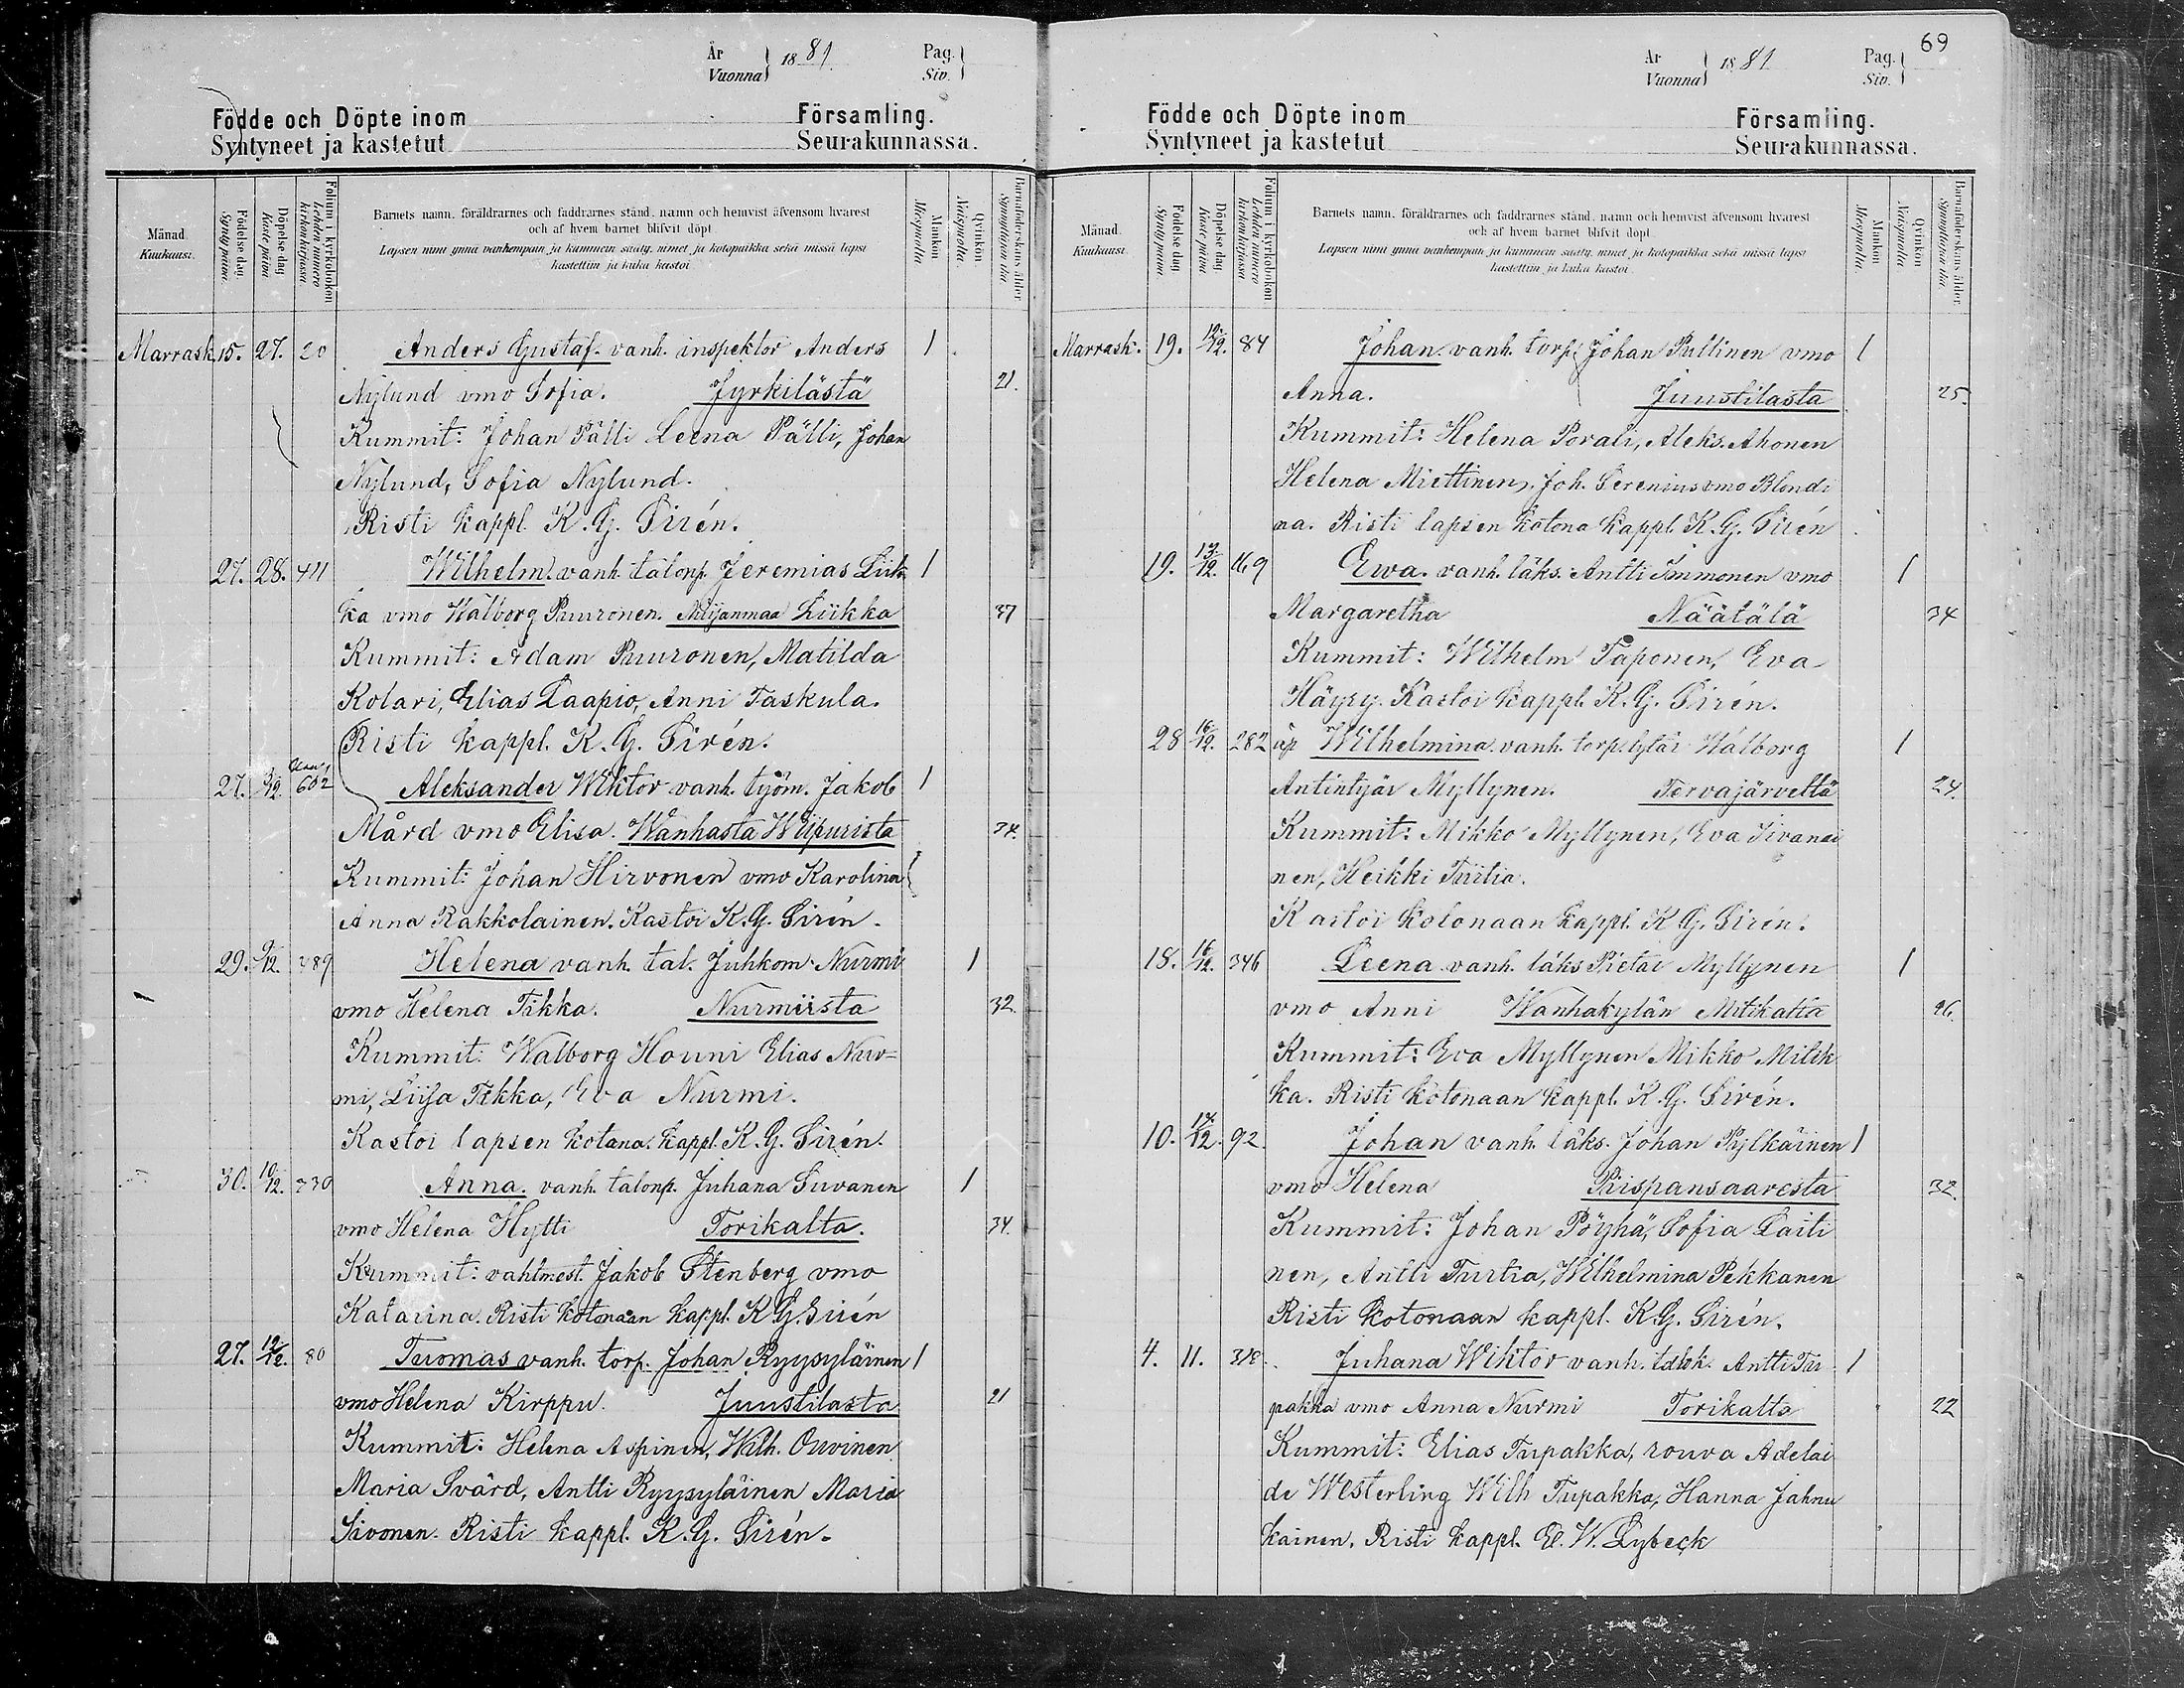 År
Vuonna } 1881.
Pag.
Siv. }
Födde och Döpte inom Församling.
Syntyneet ja kastetut Seurakunnassa.
Månad.
Kuukausi.
Födelse dag.
Syntypäivä.
Döpelse dag.
Kastepäivä.
Folium i kyrkoboken
Lehden numero
kirkonkirjassa.
Barnets namn, föräldrarnes och faddrarnes stånd, namn och hemvist äfvensom hvarest
och af hvem barnet blifvit döpt.
Lapsen nimi ynnä vanhempain ja kummein sääty, nimet ja kotopaikka sekä missä lapsi
kastettiin ja kuka kastoi
Mankön
Miespuolia.
Qvinkön
Naispuolia.
Barnaföderskans ålder.
Synnyttäjän ikä.
Marrask. 15. 27. 20 Anders Gustaf. vanh. inspektor Anders 1
Nylund vmo Sofia. Jyrkilästä 21.
Kummit: Johan Pälli Leena Pälli, Johan
Nylund, Sofia Nylund.
Risti kappl. K. G. Sirén.
27. 28. 411 Wilhelm. vanh. talonp. Jeremias Liik 1
ka vmo Walborg Puuronen. Liikka 37
Kummit: Adam Puuronen, Matilda
Kolari, Elias Laapio, Anni Taskula.
Risti kappl. K. G. Sirén.
27. 602 Aleksander Wiktor vanh. työm. Jakob 1
Mård vmo Elisa. Wanhasta Wiipurista 34.
Kummit: Johan Hirvonen vmo Karolina
Anna Rakkolainen. Kastoi K. G. Sirén.
29. 9/12. 389 Helena vanh. tal. Juhkom Nurmi 1
vmo Helena Tikka. Nurmiista 32.
Kummit: Walborg Houni Elias Nur=
mi, Liisa Tikka, Eva Nurmi.
Kastoi lapsen kotana. kappl. K. G. Sirén.
30. 10/12. 330 Anna. vanh. talonp. Juhana Suvanen 1
vmo Helena Hytti Torikalta. 34.
Kummit: vahtmest. Jakob Stenberg vmo
Katarina. Risti kotonaan kappl. K. G. Sirén
27. 12/12. 80 Tuomas vanh. torp. Johan Ryysyläinen 1
vmo Helena Kirppu. Juustilasta 21
Kummit: Helena Aspinen, Wilh. Orvinen
Maria Svärd, Antti Ryysyläinen Maria
Sivonen. Risti kappl. K. G. Sirén.
69
År
Vuonna } 1881
Pag.
Siv. }
Födde och Döpte inom Församling.
Syntyneet ja kastetut Seurakunnassa.
Månad.
Kuukausi.
Födelse dag.
Syntypäivä.
Döpelse dag.
Kastepäivä.
Folium i kyrkoboken
Lehden numero
kirkonkirjassa.
Barnets namn, föräldrarnes och faddrarnes stånd, namn och hemvist äfvensom hvarest
och af hvem barnet blifvit döpt.
Lapsen nimi ynnä vanhempain ja kummein sääty, nimet ja kotopaikka sekä missä lapsi
kastettiin ja kuka kastoi.
Mankön
Miespuolia.
Qvinkön
Naispuolia.
Barnaföderskans ålder.
Synnyttäjän ikä.
Marrask. 19. 12/12. 84 Johan. vanh. torp. Johan Pullinen vmo 1
Anna. Juustilasta 25.
Kummit: Helena Porali, Aleks. Ahonen
Helena Miettinen, Joh. Serenius vmo Blondi
na. Risti lapsen kotona kappl K. G. Sirén
19. 13/12. 169 Ewa. vanh. läks. Antti Immonen vmo 1
Margaretha Näätälä 34
Kummit: Wilhelm Taponen, Eva
Häyry. Kastoi kappl. K. G. Sirén.
28 16/12. 282 äp Wilhelmina. vanh. torp. tytär Walborg 1
Antintytär Myllynen. Tervajärveltä 24.
Kummit: Mikko Myllynen, Eva Sivanai
nen, Heikki Turtia.
Kastoi kotonaan kappl. K. G. Sirén.
18. 16/12. 346 Leena vanh. läks Pietar Myllynen 1
vmo Anni Wanhakylän Mitikatta
Kummit: Eva Myllynen Mikko Mitik
ka. Risti kotonaan kappl. K. G. Sirén.
10. 17/12. 92. Johan vanh. läks. Johan Pylkäinen 1
vmo Helena Piispansaaresta 32.
Kummit: Johan Pöyhä, Sofia Laiti
nen, Antti Turtia, Wilhelmina Pekkanen
Risti kotonaan kappl. K. G. Sirén.
4. 11. 318. Juhana Wiktor vanh. Antti Tu 1
pakka vmo Anna Nurmi Torikatta 22
Kummit: Elias Tupakka, rouva Adelai
de Westerling Wilh Tupakka, Hanna Jahnu
kainen. Risti kappl. E. W. Lybeck